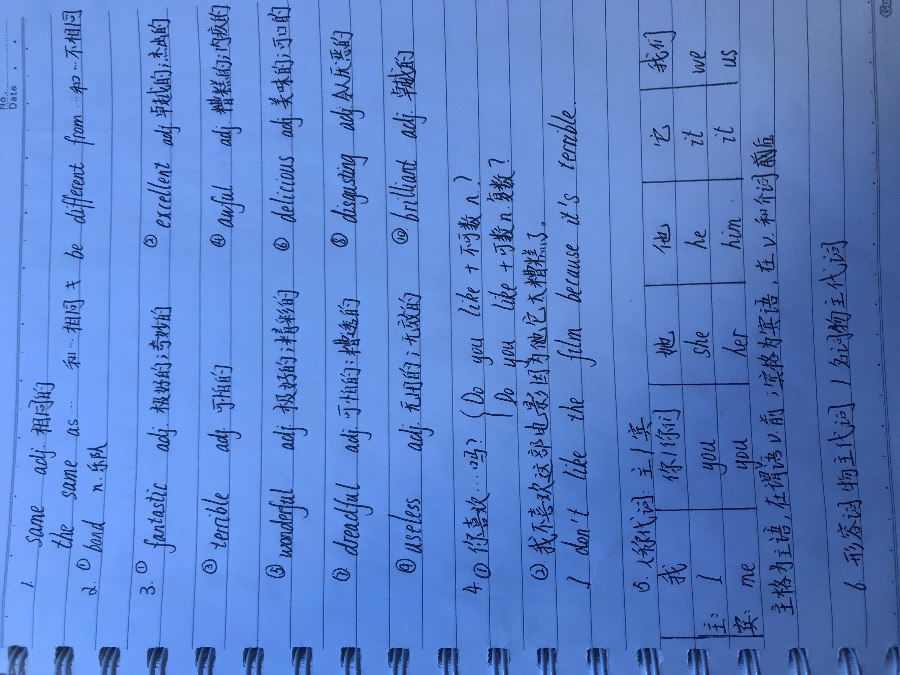 No.
Date
1. same adj. 相同的
the same as … 和…相同 be different from …和…不相同
2. ① band n. 乐队
3. ① fantastic adj. 极好的;奇妙的 ② excellent adj 卓越的;杰出的
③ terrible adj. 可怕的 ④ awful adj 糟糕的;
⑤ wonderful adj. 极好的;精彩的 ⑥ delicious adj 美味的;可口的
⑦ dreadful adj. 可怕的;糟透的 ⑧ disgusting adj 令人厌恶的
⑨ useless adj. 无用的;无效的 ⑩ brilliant adj. 卓越的
4. ① 你喜欢…吗? { Do you like + 不可数 n.?
Do you like + 可数 n 复数?
② 我不喜欢这部电影因为它太糟糕了.
I don't like the film because it's terrible.
5. 人称代词 主/宾
我 你/你们 她 他 它 我们
主: I you she he it we
宾: me you her him it us
主格为主语,在谓语 v. 前;宾格为宾语,在 v. 和介词后
6. 形容词物主代词/名词物主代词